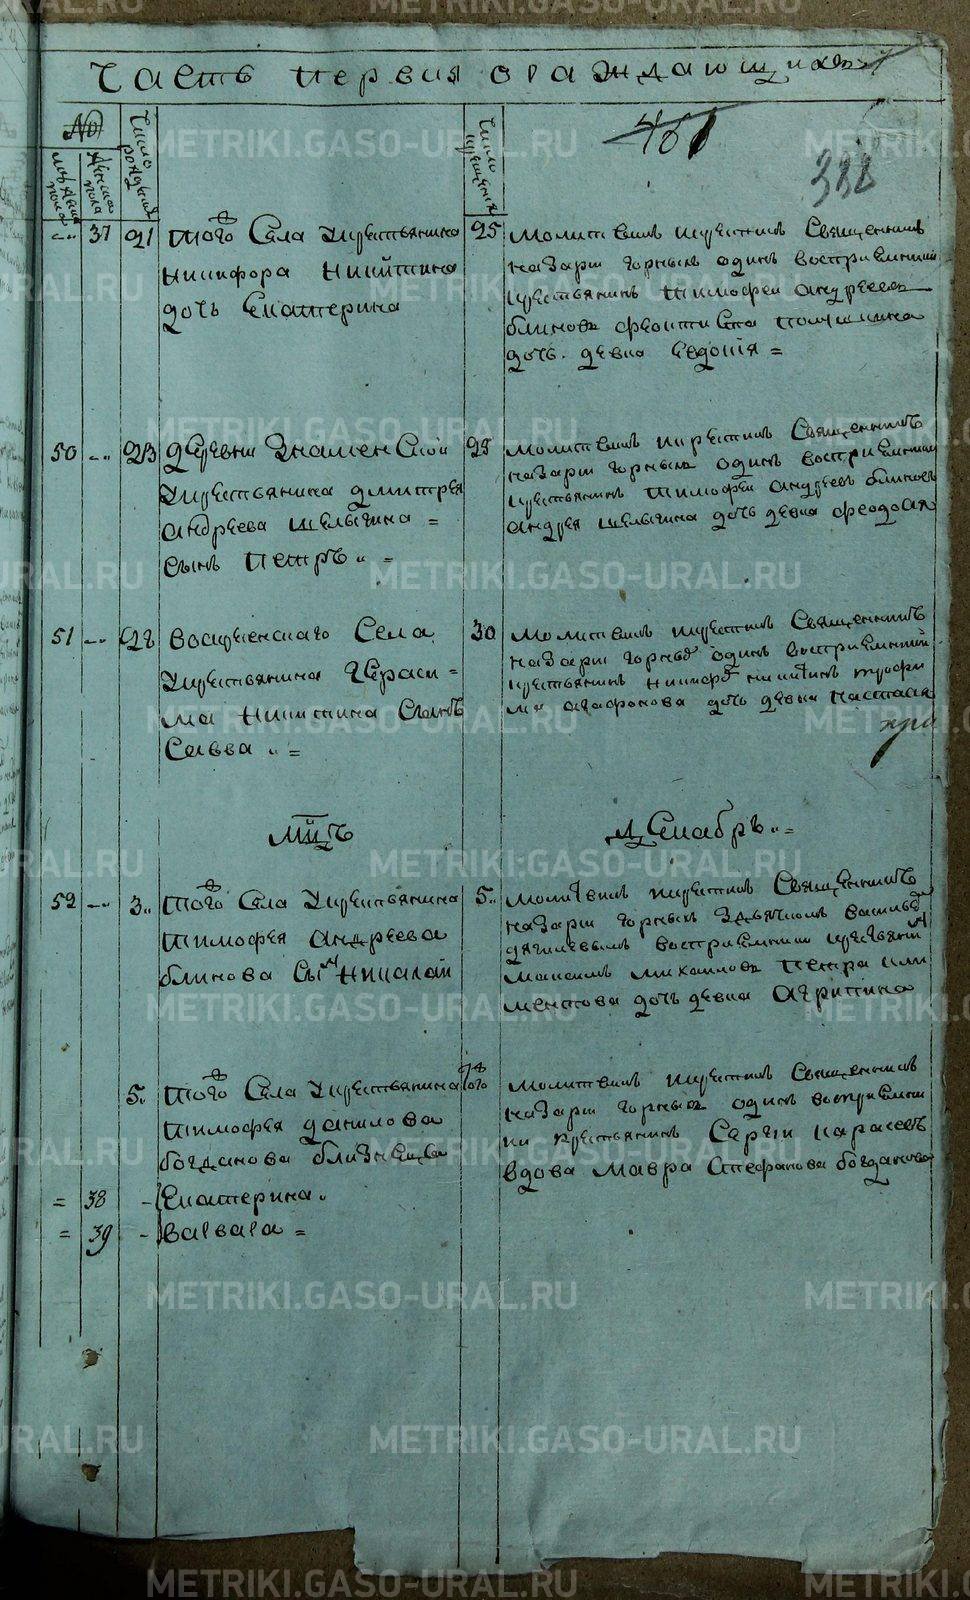 Часть первая ораждающихся
№
461
338
мужска пола
женска пола
число рождения
число крещения
37 21 того Села крестьянина
Никифора Никитина
дочь Екатерина
25 молитвилъ крестилъ Священникъ
назари горныхъ одинъ восприемникъ
крестьянинъ Тимофеи андреевъ
блиновъ феоктиста
дочь девка евдокiя =
50 23 деревни Знаменской
крестьянина дмитрея
андреева шелыгина =
сынъ Петръ =
25 молитвилъ крестилъ Священникъ
назари горныхъ одинъ восприемникъ
крестьянинъ Тимофеи андреевъ блиновъ
андрея шелыгина дочь девка феодосия
51 28 воскресенскаго Села
крестьянина Гераси =
ма Никитина Сынъ
Савва =
30 молитвилъ крестилъ Священникъ
назари горныхъ одинъ восприемникъ
крестьянинъ никифоръ никитинъ трофи
ма агафонова дочь девка настасья
мцъ декабръ =
52 3 того Села крестьянина
Тимофея андреева
блинова Сынъ Николай
5 молитвилъ крестилъ Священникъ
назари горныхъ здьячкомъ
дягилевымъ восприемники крестьянинъ
максимъ михаиловъ Петра кли
ментова дочь девка агрипина
5 того Села крестьянина
Тимофея данилова
богданова близнецы
= 38 - Екатерина
= 39 - варвара =
того молитвилъ крестилъ Священникъ
назари горныхъ одинъ восприемни
ки крестьянинъ Сергеи карасевъ
вдова мавра Стефанова богданова
METRIKI.GASO-URAL.RU